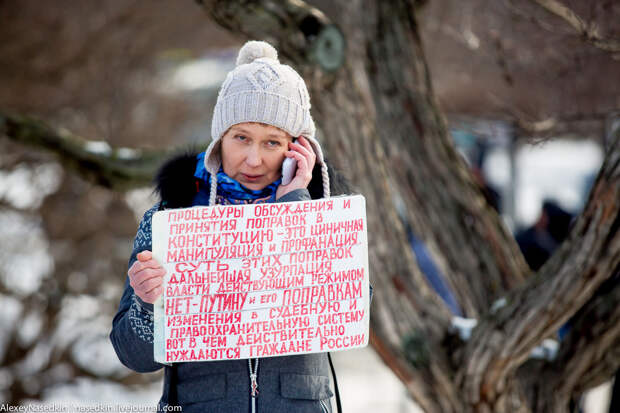 ПРОЦЕДУРЫ ОБСУЖДЕНИЯ И
ПРИНЯТИЯ ПОПРАВОК В
КОНСТИТУЦИЮ - ЭТО ЦИНИЧНАЯ
МАНИПУЛЯЦИЯ И ПРОФАНАЦИЯ.
СУТЬ ЭТИХ ПОПРАВОК
ДАЛЬНЕЙШАЯ УЗУРПАЦИЯ
ВЛАСТИ ДЕЙСТВУЮЩИМ РЕЖИМОМ
НЕТ-ПУТИНУ И ЕГО ПОПРАВКАМ
ИЗМЕНЕНИЯ В СУДЕБНУЮ И
ПРАВООХРАНИТЕЛЬНУЮ СИСТЕМУ
ВОТ В ЧЕМ ДЕЙСТВИТЕЛЬНО
НУЖДАЮТСЯ ГРАЖДАНЕ РОССИИ
AlexeyNasedkin © nasedkin.livejournal.com